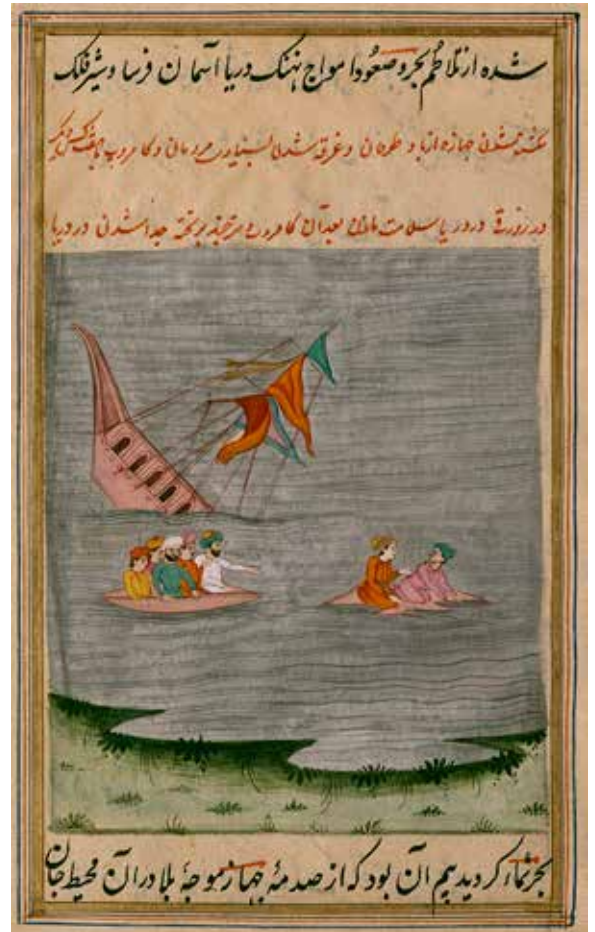 شده از تلاطم بحر و صعود امواج نهنک دریا آسمان فرسا و شیر فلک
شکسته شدن جهاز از باد طوفان و غرقه شدن بسیاری مردمان و کامروپ با
در زورق در دریا سلامت ماندن بعد آن کامروپ و مترچند بر تخته جدا شدن در دریا
بحر نماء کردید بیم آن بود که از صدمهٔ جهاز موجهٔ بلا در آن محیط جان